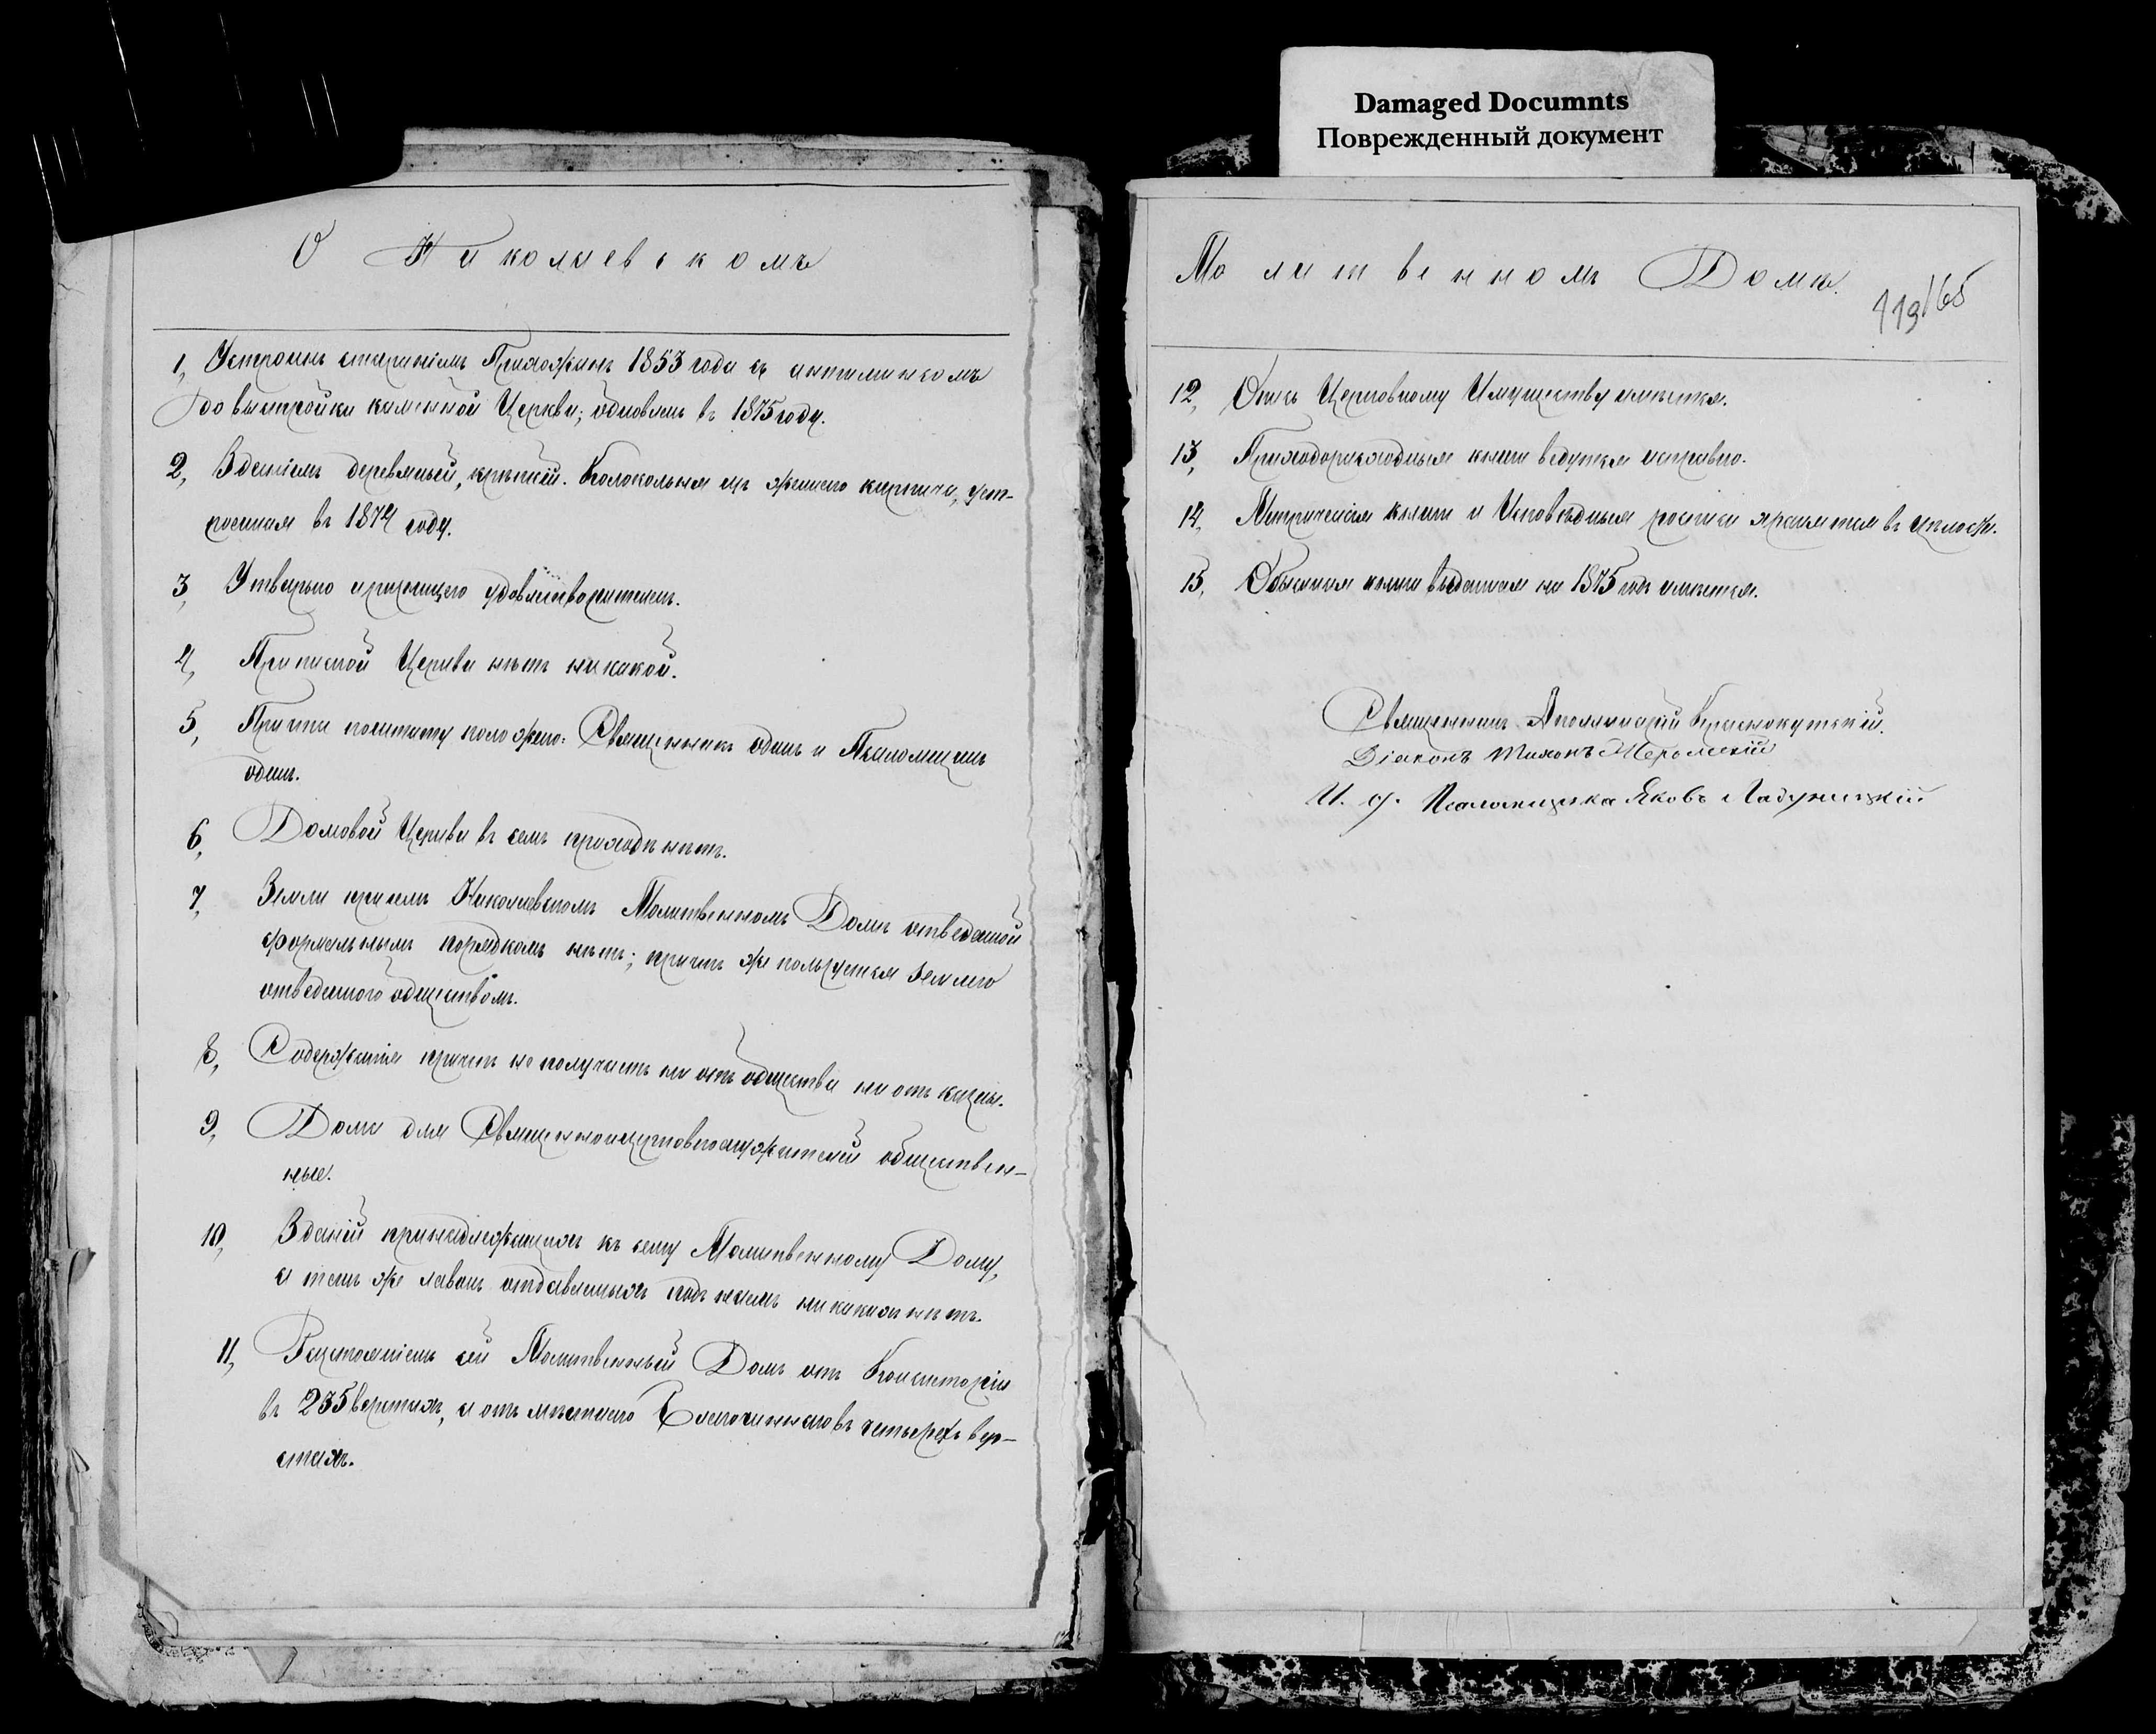 О Николаевскомъ
1, Устроенъ стараніемъ Прихожанъ 1853 года съ антиминсомъ
до выстройки каменной Церкви; обновленъ въ 1875 году.
2, Зданіемъ деревянный, крѣпкій. Колокольня изъ жженаго кирпича, уст-
роенная въ 1874 году.
3, Утварью и ризницею удовлетворителенъ.
4, Приписной Церкви нѣтъ никакой.
5, Причта по штату положено: Священникъ одинъ и Псаломщикъ
одинъ.
6, Домовой Церкви въ семъ приходѣ нѣтъ.
7, Земли при семъ Николаевскомъ Молитвенномъ Домѣ отведенной
формальнымъ порядкомъ нѣтъ; причтъ же пользуется землею
отведенною обществомъ.
8, Содержанія причтъ не получаетъ ни отъ общества ни отъ казны.
9, Дома для Священноцерковнослужителей обществен-
ные.
10, Зданій принадлежащихъ къ сему Молитвенному Дому,
а такъ же лавокъ отдаваемыхъ подъ наемъ никакихъ нѣтъ.
11, Разстояніемъ сей Молитвенный Домъ отъ Консисторіи
въ 235 верстахъ, и отъ мѣстнаго Благочиннаго въ четырехъ вер-
стахъ.
Damaged Documnts
Поврежденный документ
Молитвенномъ Домѣ.
119/65
12, Опись Церковному Имуществу имѣется.
13, Приходорасходныя книги ведутся исправно.
14, Метрическія книги и Исповѣдныя росписи хранятся въ цѣлости.
15, Обыскная книга выданная на 1875 годъ имѣется.
Священникъ Аполинарій Краснокутскій.
Діаконъ Тихонъ Жеромскій
И. д. Псаломщика Яковъ Ладужицкій